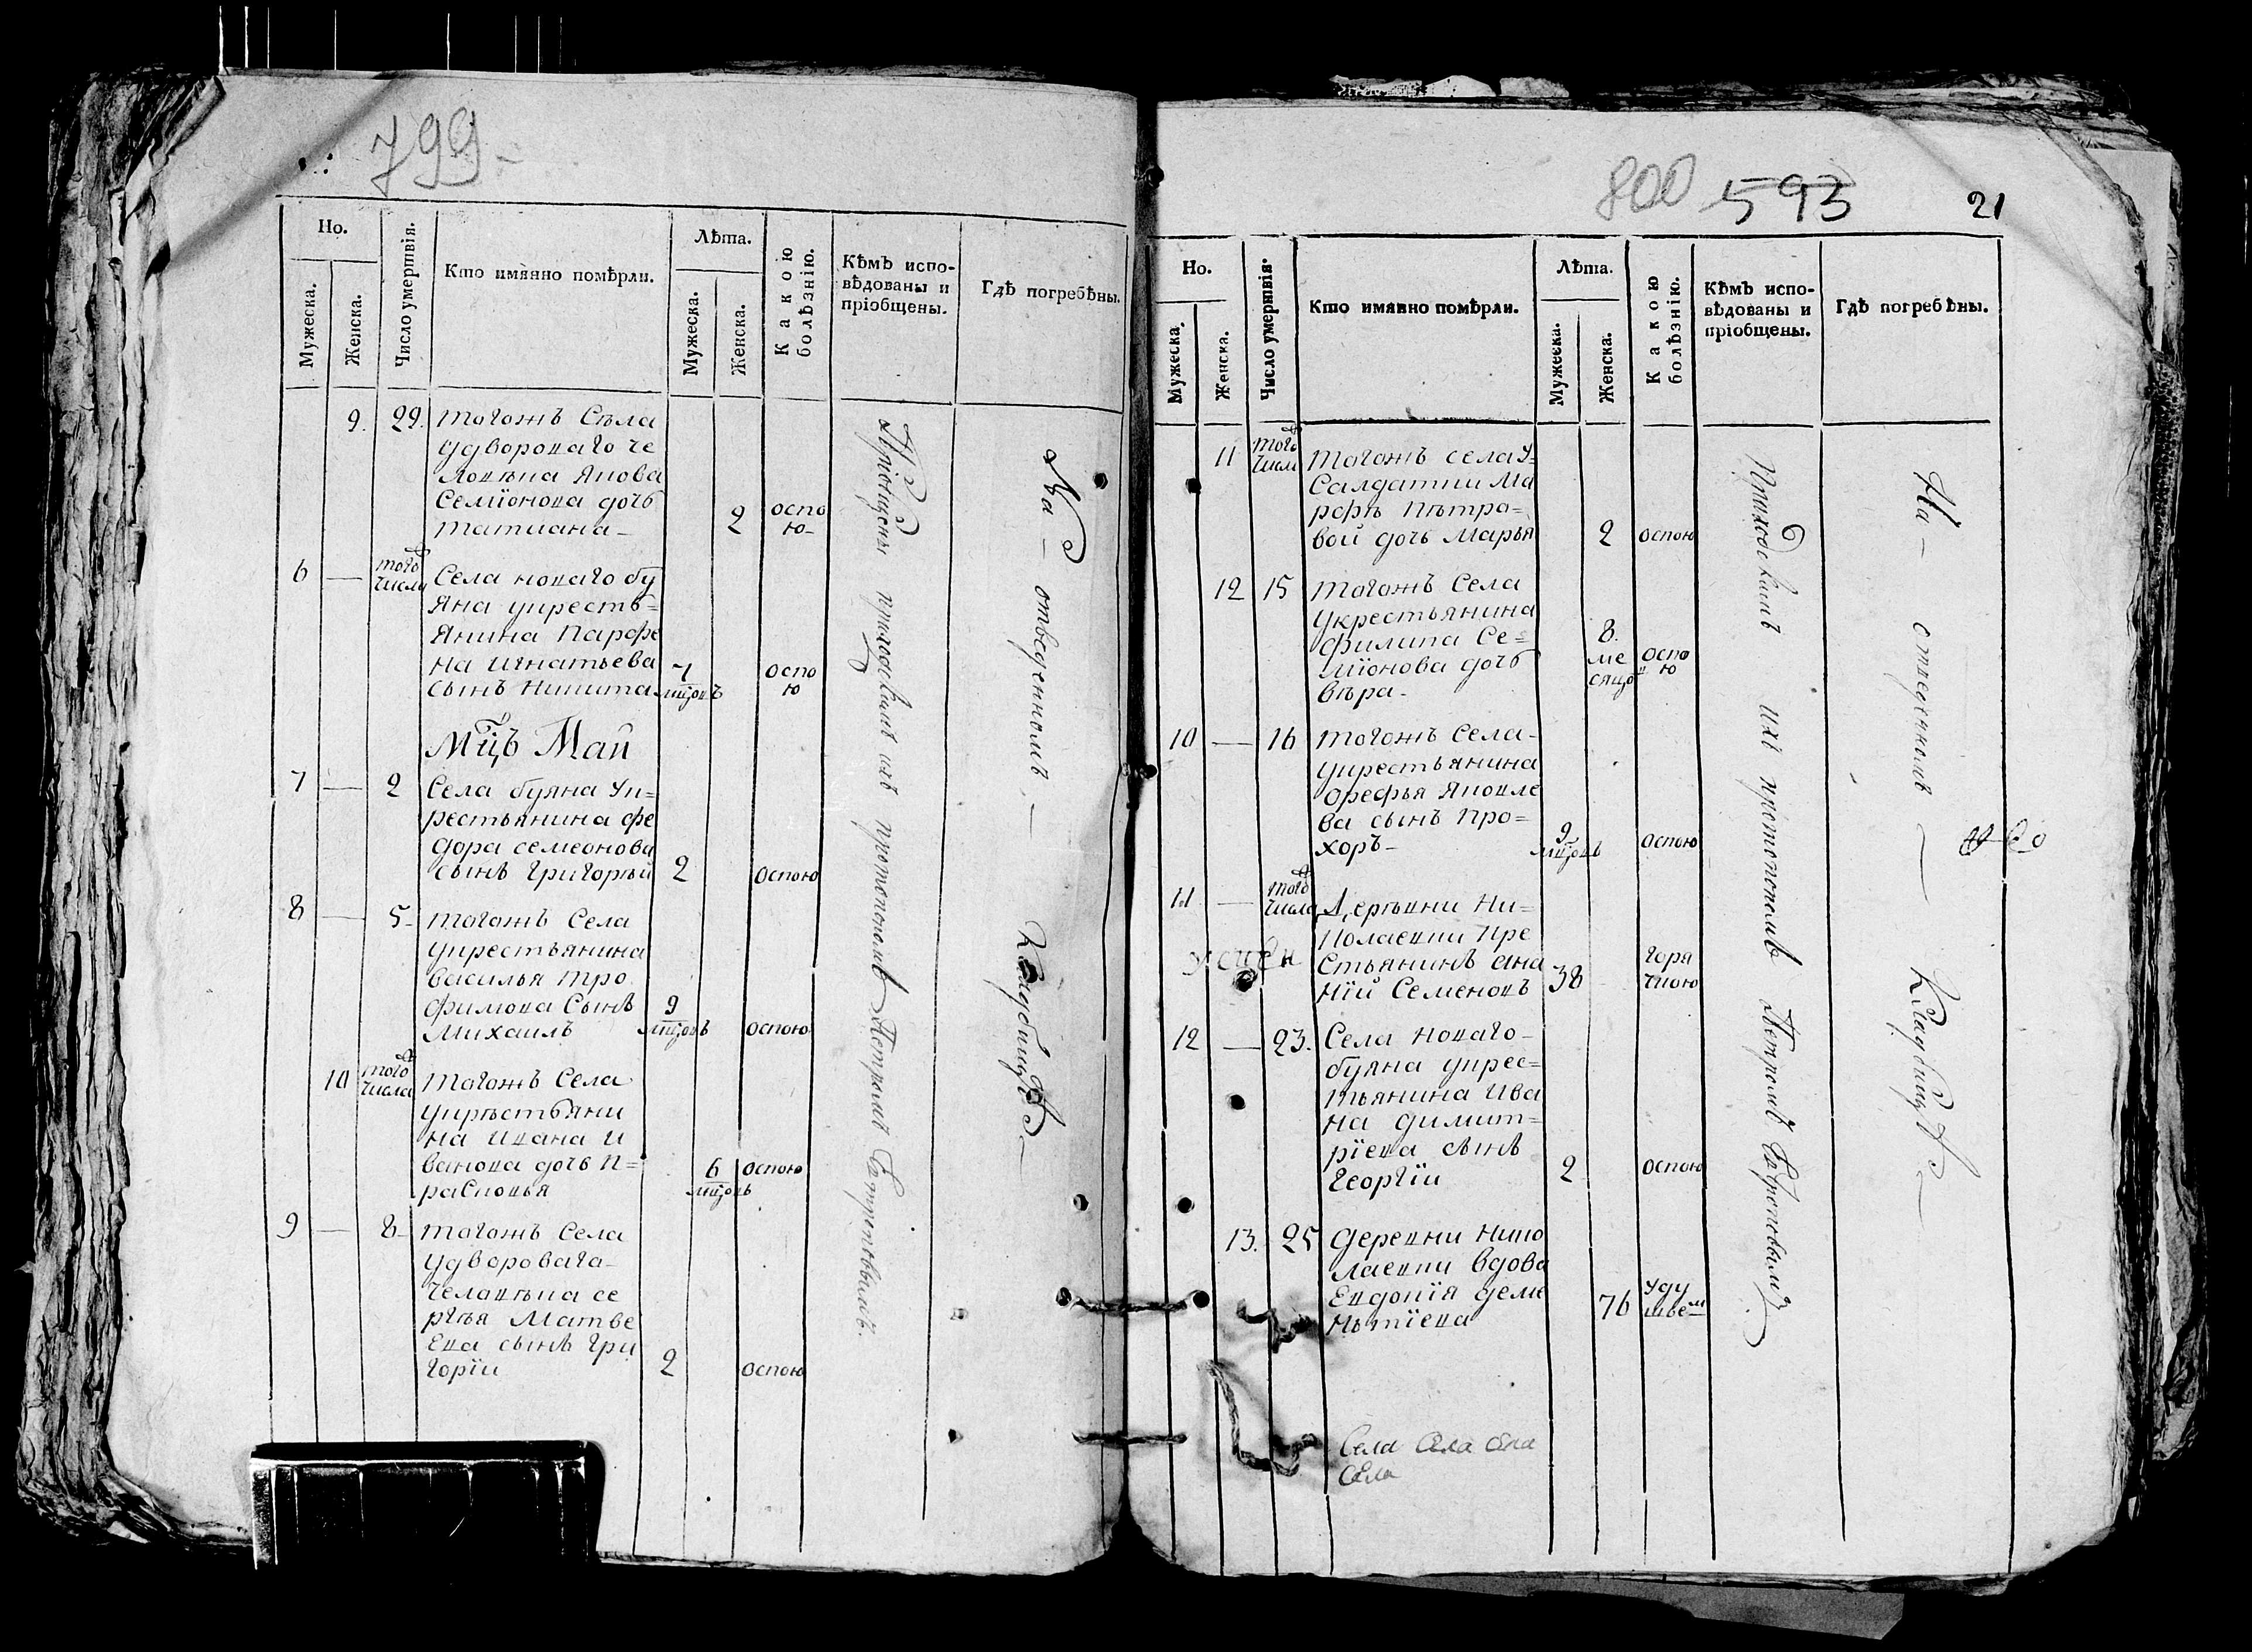 799
Но.
Мужеска.
Женска.
Число умертвія.
Кто имянно помѣрли.
Лѣта.
Мужеска.
Женска.
Какою болѣзнію.
Кѣмъ испо-
вѣдованы и
пріобщены.
Гдѣ погребѣны.
9. 29. тогожъ Села
удворового че
ловѣка Якова
Семіонова дочь
татиана 2 оспо
ю
6 — того числа Села новаго бу
Яна укресть=
янина Парфе
на игнатьева 7 оспо
сынъ Никита мцовъ ю
Мцъ Май
7 — 2 Села буяна Ук=
рестьянина фе
дора семеонова
сынъ Григорьй 2 оспою
8 — 5 тогожъ Села
укрестьянина
василья тро
фимова Сынъ 9
михаилъ мцовъ оспою
10 того числа тогожъ Села
укрѣстьяни
на Ивана и
ванова дочь П= 6 оспою
расковья мцовъ
9 — 8 тогожъ Села
удворовага
человѣка се
ргѣя Матве
Ева сынъ гри
горіи 2 оспою
Пріобщены приходскимъ ихъ протопопомъ Петромъ
На — отведенномъ — Кладбищѣ —
800 593 21
Но.
Мужеска.
Женска.
Число умертвія.
Кто имянно помѣрли.
Лѣта.
Мужеска.
Женска.
Какою болѣзнію.
Кѣмъ испо-
вѣдованы и
пріобщены.
Гдѣ погребѣны.
11 того числа тогожъ села у=
Салдатки Ма
рфѣ Пѣтро=
вой дочь Марья 2 оспою
12 15 тогожъ Села
укрестьянина
филипа Се= 8.
міонова дочь ме оспо
вѣра сяцо ю
10 — 16 тогожъ Села
укрестьянина
орефья Яковле
ва сынъ про= 9
хоръ мцовъ оспою
11 — того числа Дерѣвни Ни=
колаевки кре
стьянинъ ана горя
ній Семеновъ 38 чкою
12 — 23. Села новаго
буяна укрес=
тьянина Ива
на димит=
ріева сынъ
георгіи 2 оспою
13. 25 деревни нико
лаевки вдова
Евдокія деме 76 уду
ньтіева шьем
Приходскимъ ихъ протопопомъ Петромъ
На — отведенномъ — Кладбищѣ —
Села Села Села
Села